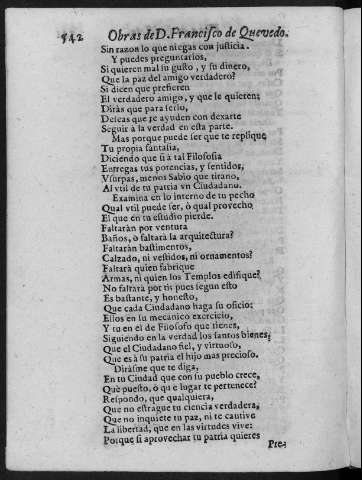 542 Obras de D. Francisco de Quevedo.
Sin razon lo que niegas con justicia.
Y puedes preguntarlos,
Si quieren mal su gusto, y su dinero,
Que la paz del amigo verdadero?
Si dicen que prefieren
El verdadero amigo, y que le quieren;
Diràs que para serlo,
Deseas que te ayuden con dexarte
Seguir à la verdad en esta parte.
Mas porque puede ser que te replique
Tu propia fantasia,
Diciendo que si à tal Filosofia
Entregas tus potencias, y sentidos,
Vsurpas, menos Sabio que tirano,
Al vtil de tu patria vn Ciudadano.
Examina en lo interno de tu pecho
Qual vtil puede ser, ò qual provecho
El que en tu estudio pierde.
Faltaràn por ventura
Baños, o faltarà la arquitectura?
Faltaràn bastimentos,
Calzado, ni vestidos, ni ornamentos?
Faltarà quien fabrique
Armas, ni quien los Templos edifique?
No faltarà por ti; pues segun esto
Es bastante, y honesto,
Que cada Ciudadano haga su oficio:
Ellos en su mecanico exercicio,
Y tu en el de Filosofo que tienes,
Siguiendo en la verdad los santos bienes;
Que el Ciudadano fiel, y virtuoso,
Que es à su patria el hijo mas precioso.
Diràsme que te diga,
En tu Ciudad que con su pueblo crece,
Què puesto, ò què lugar te pertenece?
Respondo, que qualquiera,
Que no estrague tu ciencia verdadera,
Que no inquiete tu paz, ni te cautive
La libertad, que en las virtudes vive:
Porque si aprovechar tu patria quieres
Pre-